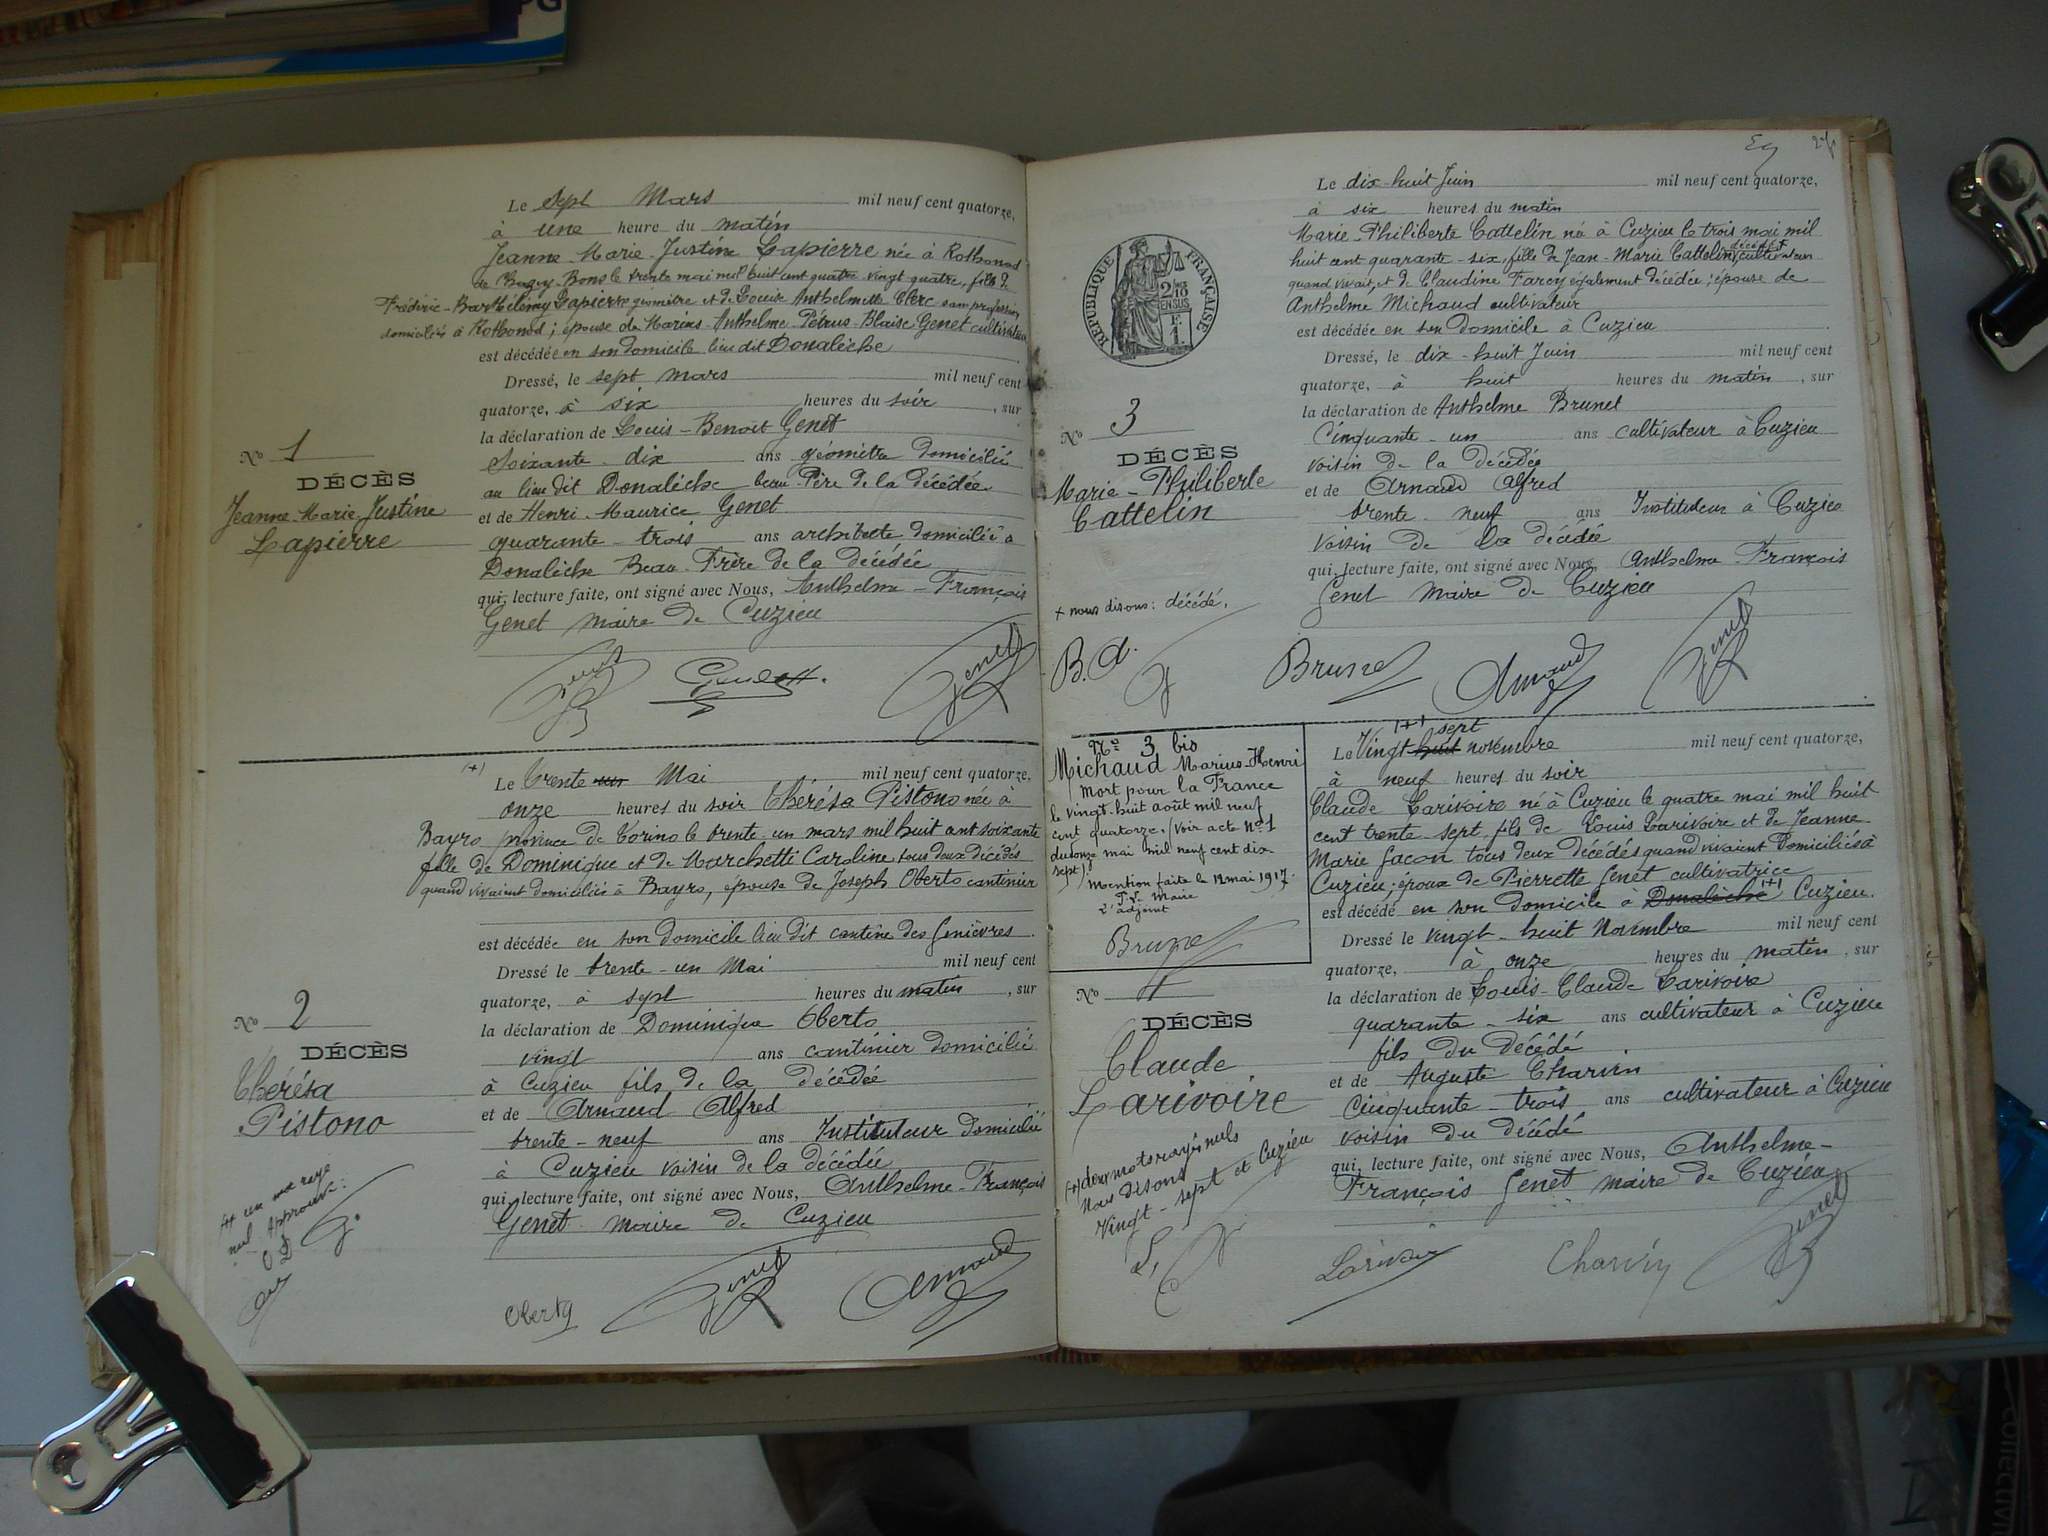 Le sept Mars mil neuf cent quatorze,
à une heure du matin
Jeanne-Marie-Justine Lapierre née à Rothonod
de Bugey-Bons le trente mai mil huit cent quatre-vingt quatre, fille de
Frédéric-Barthélémy Lapierre géomètre et de Louise Anthelmette Clerc sans profession
domiciliés à Rothonod; épouse de Marius-Anthelme-Pétrus-Blaise Genet cultivateur
est décédée en son domicile lieu dit Donalèche
Dressé, le sept mars mil neuf cent
quatorze, à six heures du soir, sur
la déclaration de Louis-Benoit Genet
soixante-dix ans géomètre domicilié
au lieu dit Donalèche beau-Père de la décédée
et de Henri-Maurice Genet
quarante-trois ans architecte domicilié à
Donalèche Beau-Frère de la décédée
qui, lecture faite, ont signé avec Nous, Anthelme-François
Genet maire de Cuzieu
No 1
DÉCÈS
Jeanne-Marie-Justine
Lapierre
Genet
Genet
Genet
(+)
Le trente un Mai mil neuf cent quatorze,
onze heures du soir Thérésa Pistono née à
Bayro province de Torino le trente-un mars mil huit cent soixante
fille de Dominique et de Marchetti Caroline tous deux décédés
quand vivaient domiciliés à Bayro, épouse de Joseph Oberto cantinier
est décédée en son domicile lieu dit cantine des Genièvres.
Dressé le trente-un Mai mil neuf cent
quatorze, à sept heures du matin, sur
la déclaration de Dominique Oberto
vingt ans cantinier domicilié
à Cuzieu fils de la décédée
et de Arnaud Alfred
trente-neuf ans Instituteur domicilié
à Cuzieu voisin de la décédée
qui, lecture faite, ont signé avec Nous, Anthelme-François
Genet maire de Cuzieu
No 2
DÉCÈS
Thérésa
Pistono
(+) un mot rayé
nul Approuvé:
O D G.
Oberto
Genet
Arnaud
24
RÉPUBLIQUE FRANÇAISE
2/10 EN SUS
1 F.
Le dix-huit Juin mil neuf cent quatorze,
à six heures du matin
Marie-Philiberte Cattelin né à Cuzieu le trois mai mil
huit cent quarante-six, fille de Jean-Marie Cattelin décédé + cultivateur
quand vivait, et de Claudine Farcy également décédée; épouse de
Anthelme Michaud cultivateur
est décédée en son domicile à Cuzieu
Dressé, le dix-huit Juin mil neuf cent
quatorze, à huit heures du matin, sur
la déclaration de Anthelme Brunet
Cinquante-un ans cultivateur à Cuzieu
voisin de la décédée
et de Arnaud Alfred
trente-neuf ans Instituteur à Cuzieu
voisin de la décédée
qui, lecture faite, ont signé avec Nous, Anthelme François
Genet Maire de Cuzieu
No 3
DÉCÈS
Marie-Philiberte
Cattelin
+ nous disons: décédé.
B. A. G
Brunet
Arnaud
Genet
No 3 bis
Michaud Marius-Henri
Mort pour la France
le vingt-huit août mil neuf
cent quatorze. (Voir acte No 1
du onze mai mil neuf cent dix-
sept).
Mention faite le 12 mai 1917.
Pr Le Maire
L'adjoint
Brunet
(+) sept
Le Vingt huit novembre mil neuf cent quatorze,
à neuf heures du soir
Claude Larivoire né à Cuzieu le quatre mai mil huit
cent trente-sept, fils de Louis Larivoire et de Jeanne
Marie Jacon tous deux décédés quand vivaient domiciliés à
Cuzieu; époux de Pierrette Genet cultivatrice
est décédé en son domicile à Donalèche (+) Cuzieu.
Dressé le vingt-huit Novembre mil neuf cent
quatorze, à onze heures du matin, sur
la déclaration de Louis-Claude Larivoire
quarante-six ans cultivateur à Cuzieu
fils du décédé
et de Auguste Charvin
Cinquante-trois ans cultivateur à Cuzieu
voisin du décédé
qui, lecture faite, ont signé avec Nous, Anthelme-
François Genet maire de Cuzieu
No 4
DÉCÈS
Claude
Larivoire
(+) deux mots rayés nuls
Nous disons
Vingt-sept et Cuzieu
L, G
C
Larivoire
Charvin
Genet